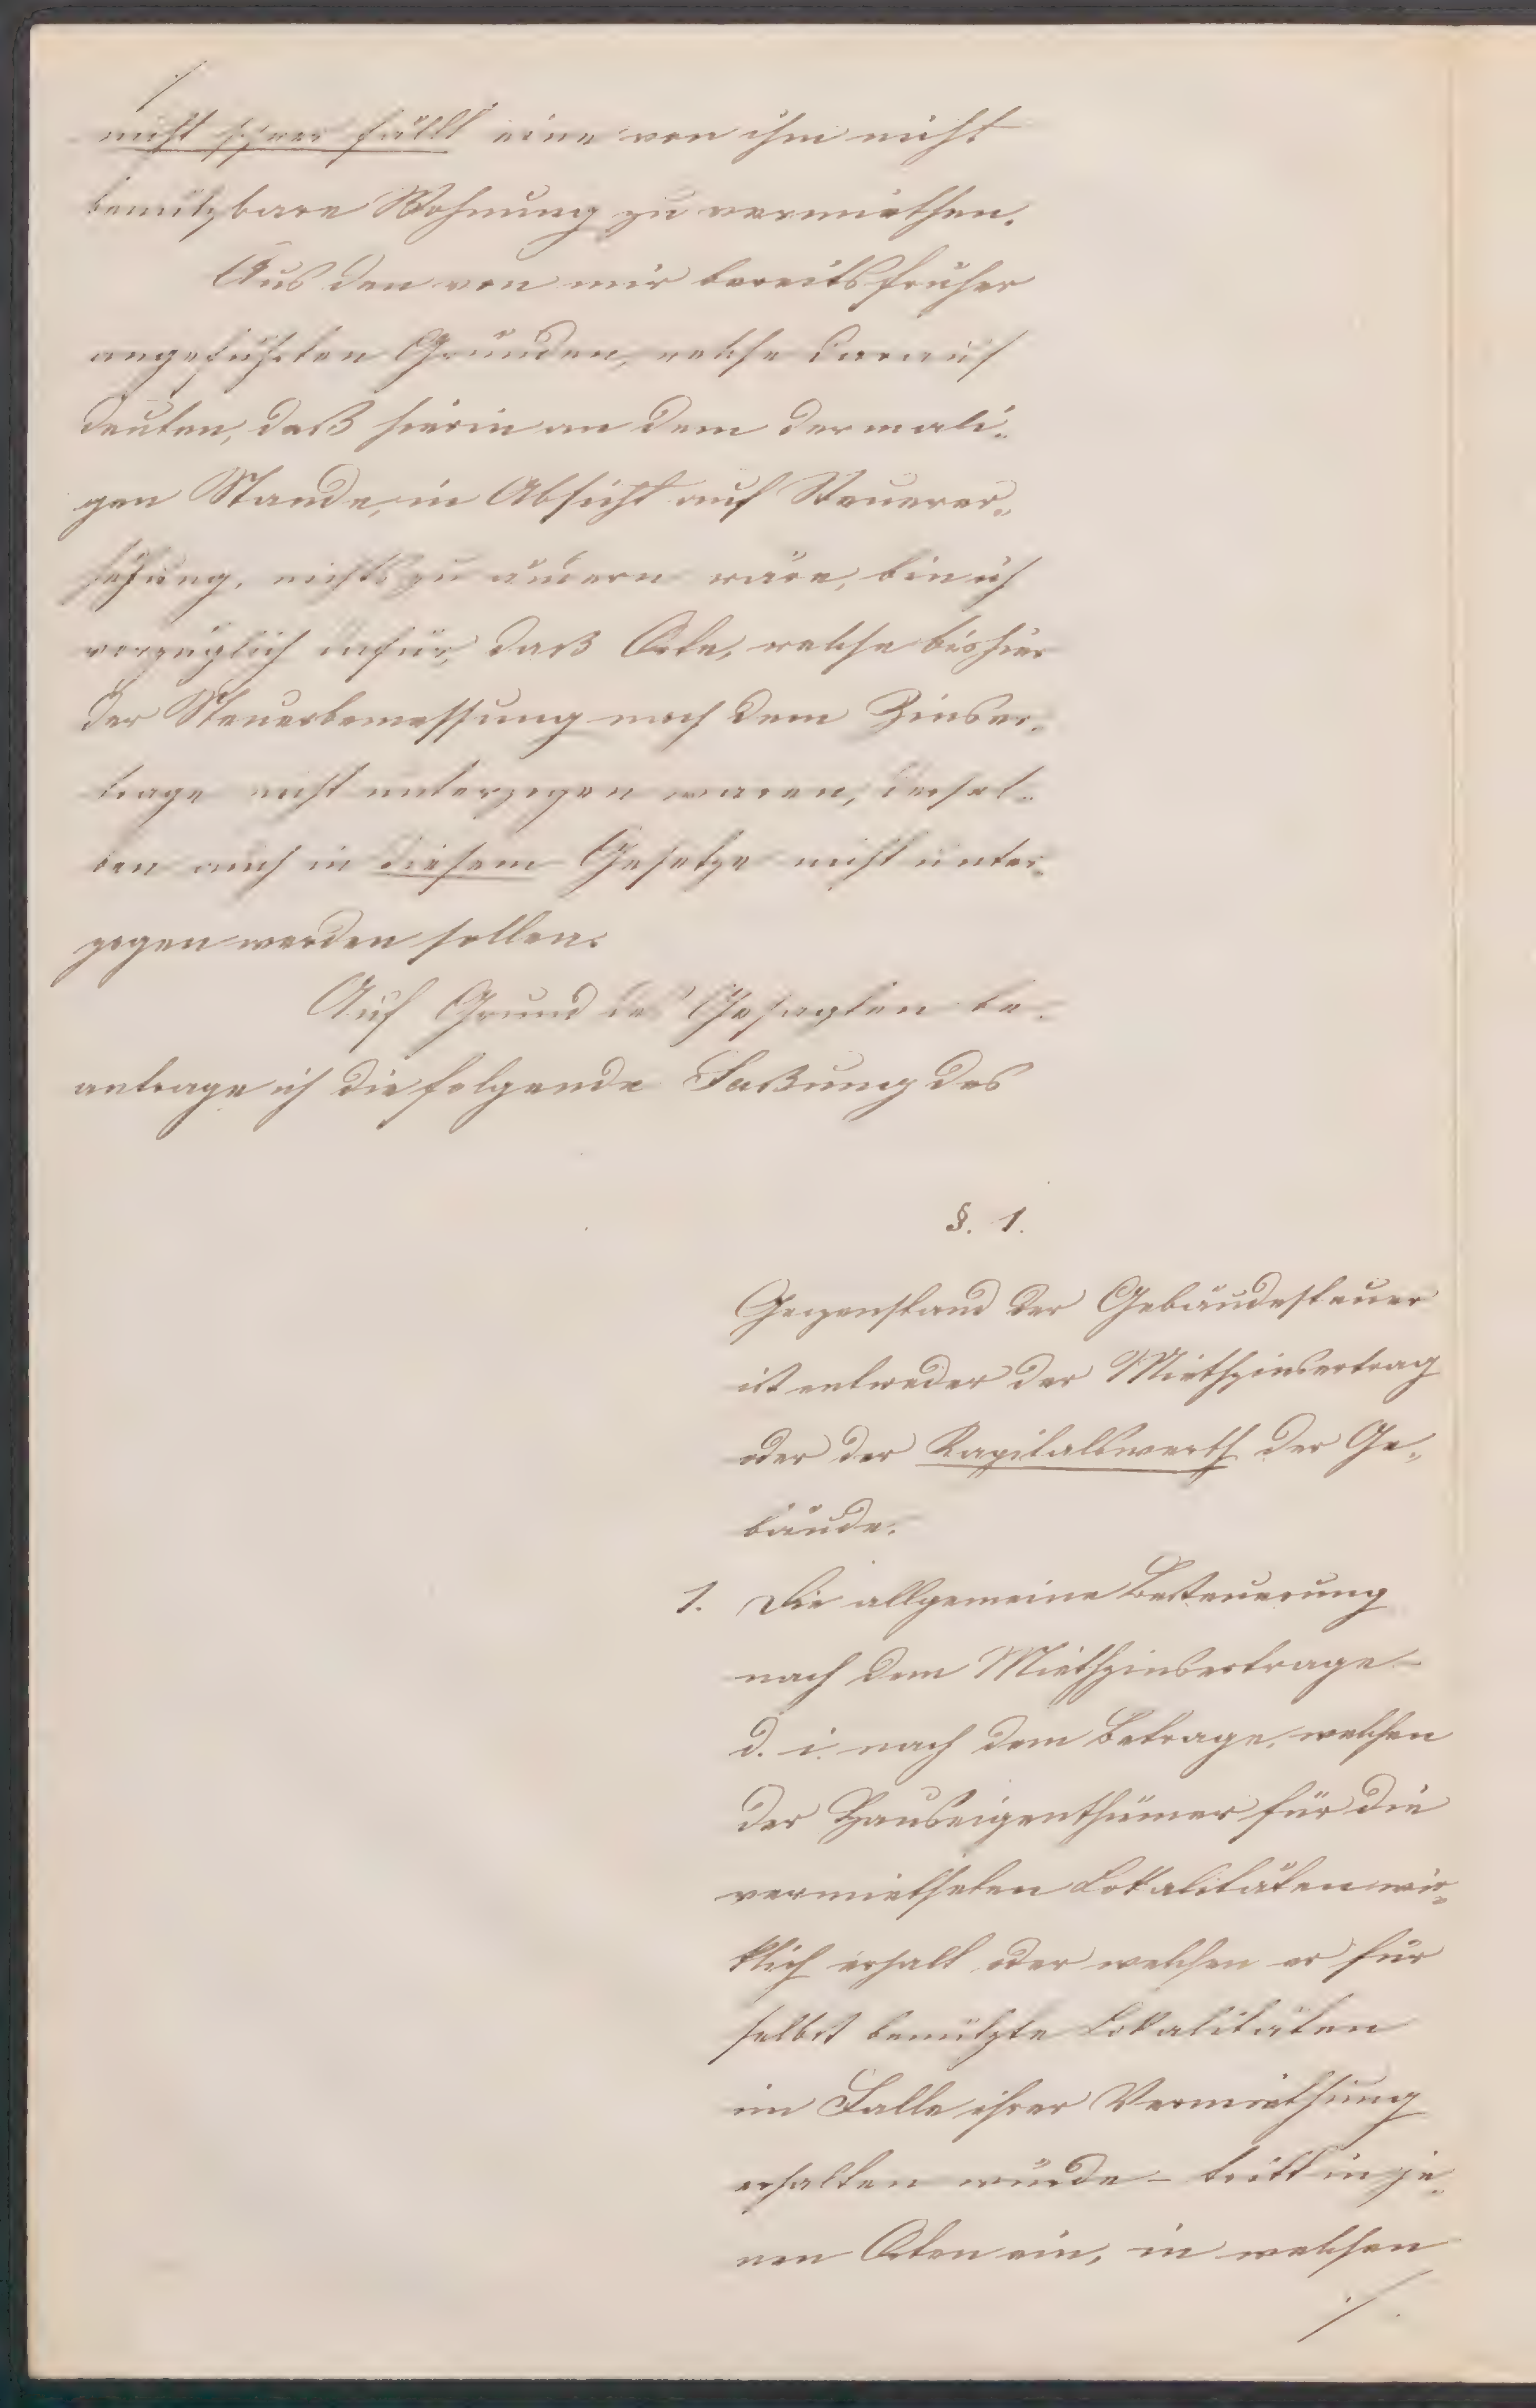 ./.
nicht schwer fällt eine von ihm nicht
benützbare Wohnung zu vermiethen.
Aus den von mir bereits früher
angeführten Gründen, welche darauf
deuten, daß hierin an dem dermali-
gen Stande, in Absicht auf Steuerer-
höhung, nichts zu ändern wäre, bin ich
vorzüglich dafür, daß Orte, welche bisher
der Steuerbemessung nach dem Zinser-
trage nicht unterzogen waren, dersel-
ben auch in diesem Gesetze nicht unter-
zogen werden sollen.
Auf Grund des Gesagten be-
antrage ich die folgende Faßung des
§. 1.
Gegenstand der Gebäudesteuer
ist entweder der Miethzinsertrag
oder der Kapitalswerth der Ge-
bäude.
1. Die allgemeine Besteuerung
nach dem Miethzinsertrage –
d. i. nach dem Betrage, welchen
der Hauseigenthümer für die
vermietheten Lokalitäten wir-
klich erhält oder welchen er für
selbst benützte Lokalitäten
im Falle ihrer Vermiethung
erhalten würde – tritt in je-
nen Orten ein, in welchen
./.